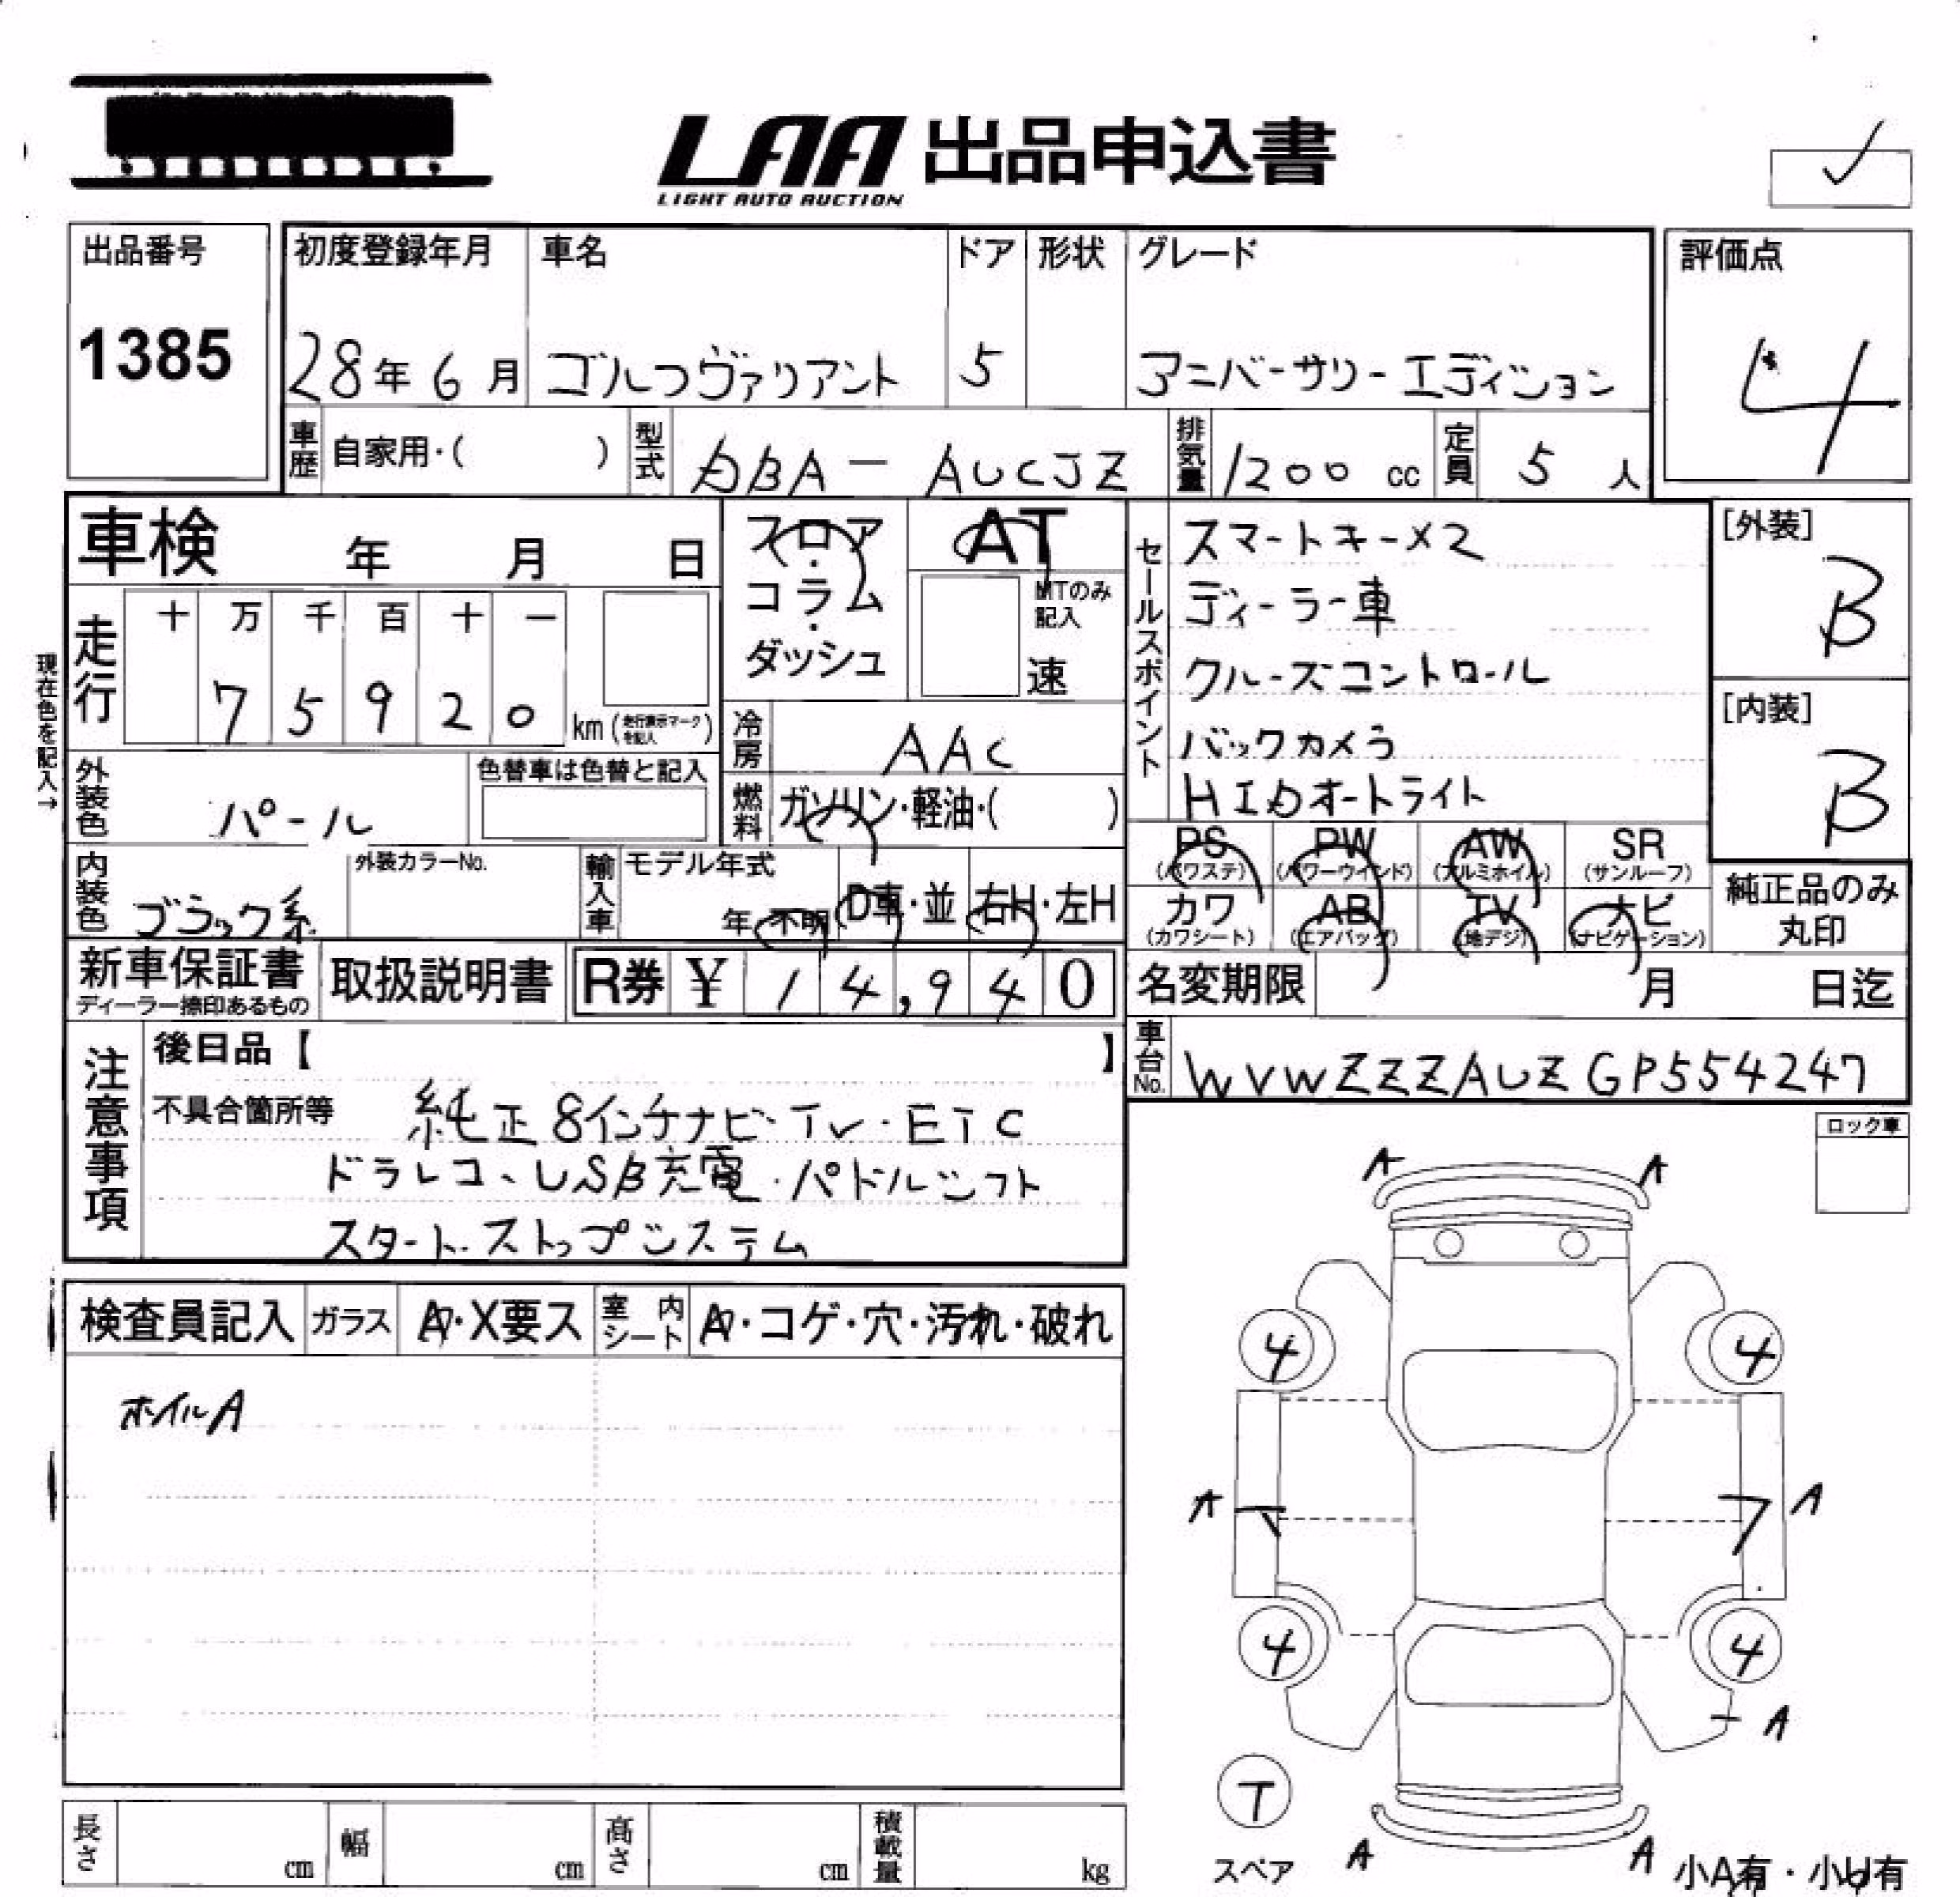 LAA 出品申込書
LIGHT AUTO AUCTION
出品番号
1385
初度登録年月
28年6月
車名
ゴルフヴァリアント
ドア
5
形状
グレード
アニバーサリーエディション
評価点
4
車歴 自家用・( )
型式 DBA-AUCJZ
排気量 1200 cc
定員 5 人
車検 年 月 日
フロア・コラム・ダッシュ
AT
MTのみ記入
速
セールスポイント
スマートキー×2
ディーラー車
クルーズコントロール
バックカメラ
HIDオートライト
[外装]
B
[内装]
B
現在色を記入→
走行
十 万 千 百 十 一
7 5 9 2 0 km (走行表示マークを記入)
冷房 AAC
外装色 パール
色替車は色替と記入
燃料 ガソリン・軽油・( )
内装色 ブラック系
外装カラーNo.
輸入車 モデル年式
年 不明 D車・並 右H・左H
PS (パワステ)
PW (パワーウインド)
AW (アルミホイル)
SR (サンルーフ)
カワ (カワシート)
AB (エアバッグ)
TV (地デジ)
ナビ (ナビゲーション)
純正品のみ丸印
新車保証書
ディーラー捺印あるもの
取扱説明書
R券 ¥ 14,940
名変期限 月 日迄
車台No. WVWZZZAUZGP554247
注意事項
後日品【 】
不具合箇所等 純正8インチナビ・TV・ETC
ドラレコ、USB充電・パドルシフト
スタート・ストップシステム
ロック車
検査員記入 ガラス A・X要ス 室内シート A・コゲ・穴・汚れ・破れ
ホイルA
A A
4 4
A A
4 4
A
T
スペア
A A
小A有・小U有
長さ cm 幅 cm 高さ cm 積載量 kg